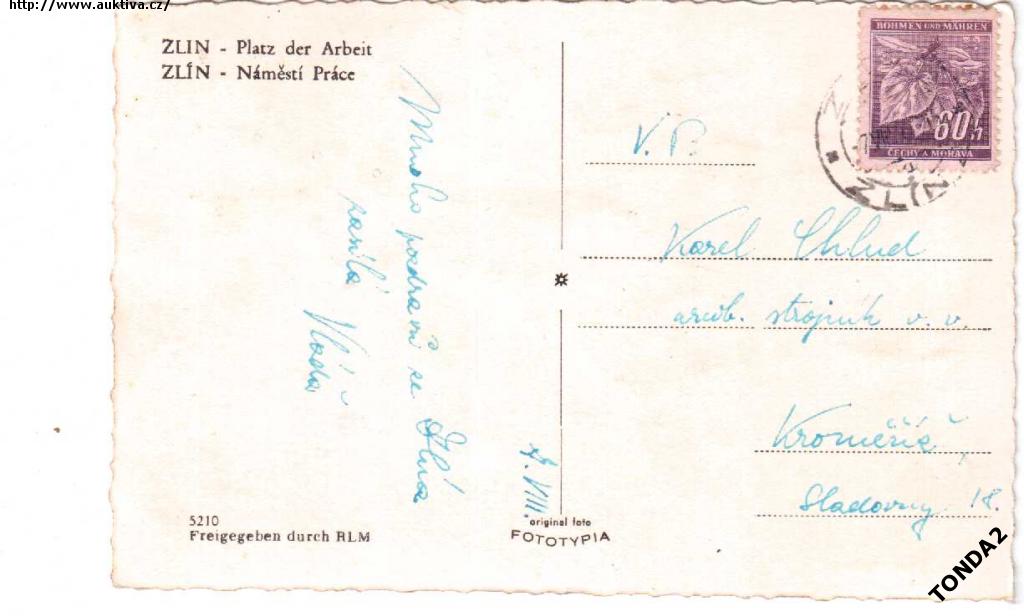 http://www.auktiva.cz/
ZLIN - Platz der Arbeit
ZLÍN - Náměstí Práce
BÖHMEN UND MÄHREN
60 h
ČECHY A MORAVA
ZLÍN
Mnoho pozdravů ze Zlína
zasílá Vláďa
7. VIII.
V. P.
Karel Chlud
arcib. strojník v. v.
Kroměříž,
Sladovny 18.
5210
Freigegeben durch RLM
original foto
FOTOTYPIA
TONDA2